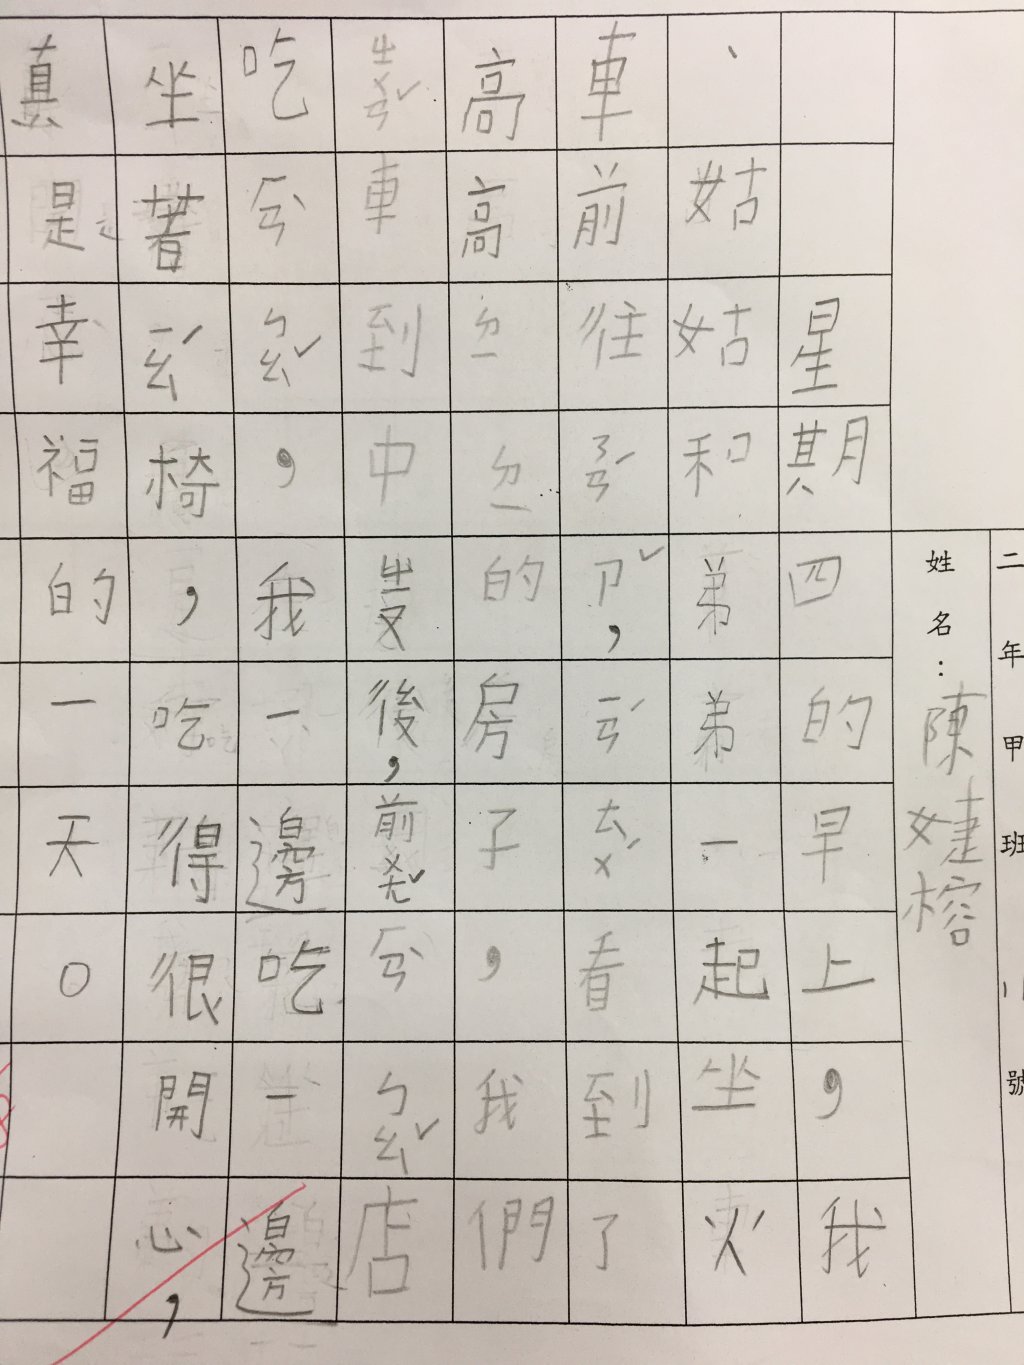 二年甲班 號
姓名:陳婕榕
星期四的早上,我
、姑姑和弟弟一起坐火
車前往ㄋㄢˊㄗˇ,ㄧㄢˊㄊㄨˊ看到了
高高ㄉㄧㄉㄧ的房子,我們
ㄓㄨㄢˇ車到中ㄓㄡ後,前ㄨㄤˇㄏㄢˋㄅㄠˇ店
吃ㄏㄢˋㄅㄠˇ,我一邊吃一邊
坐著ㄧㄠˊ椅,吃得很開心,
真是幸福的一天。